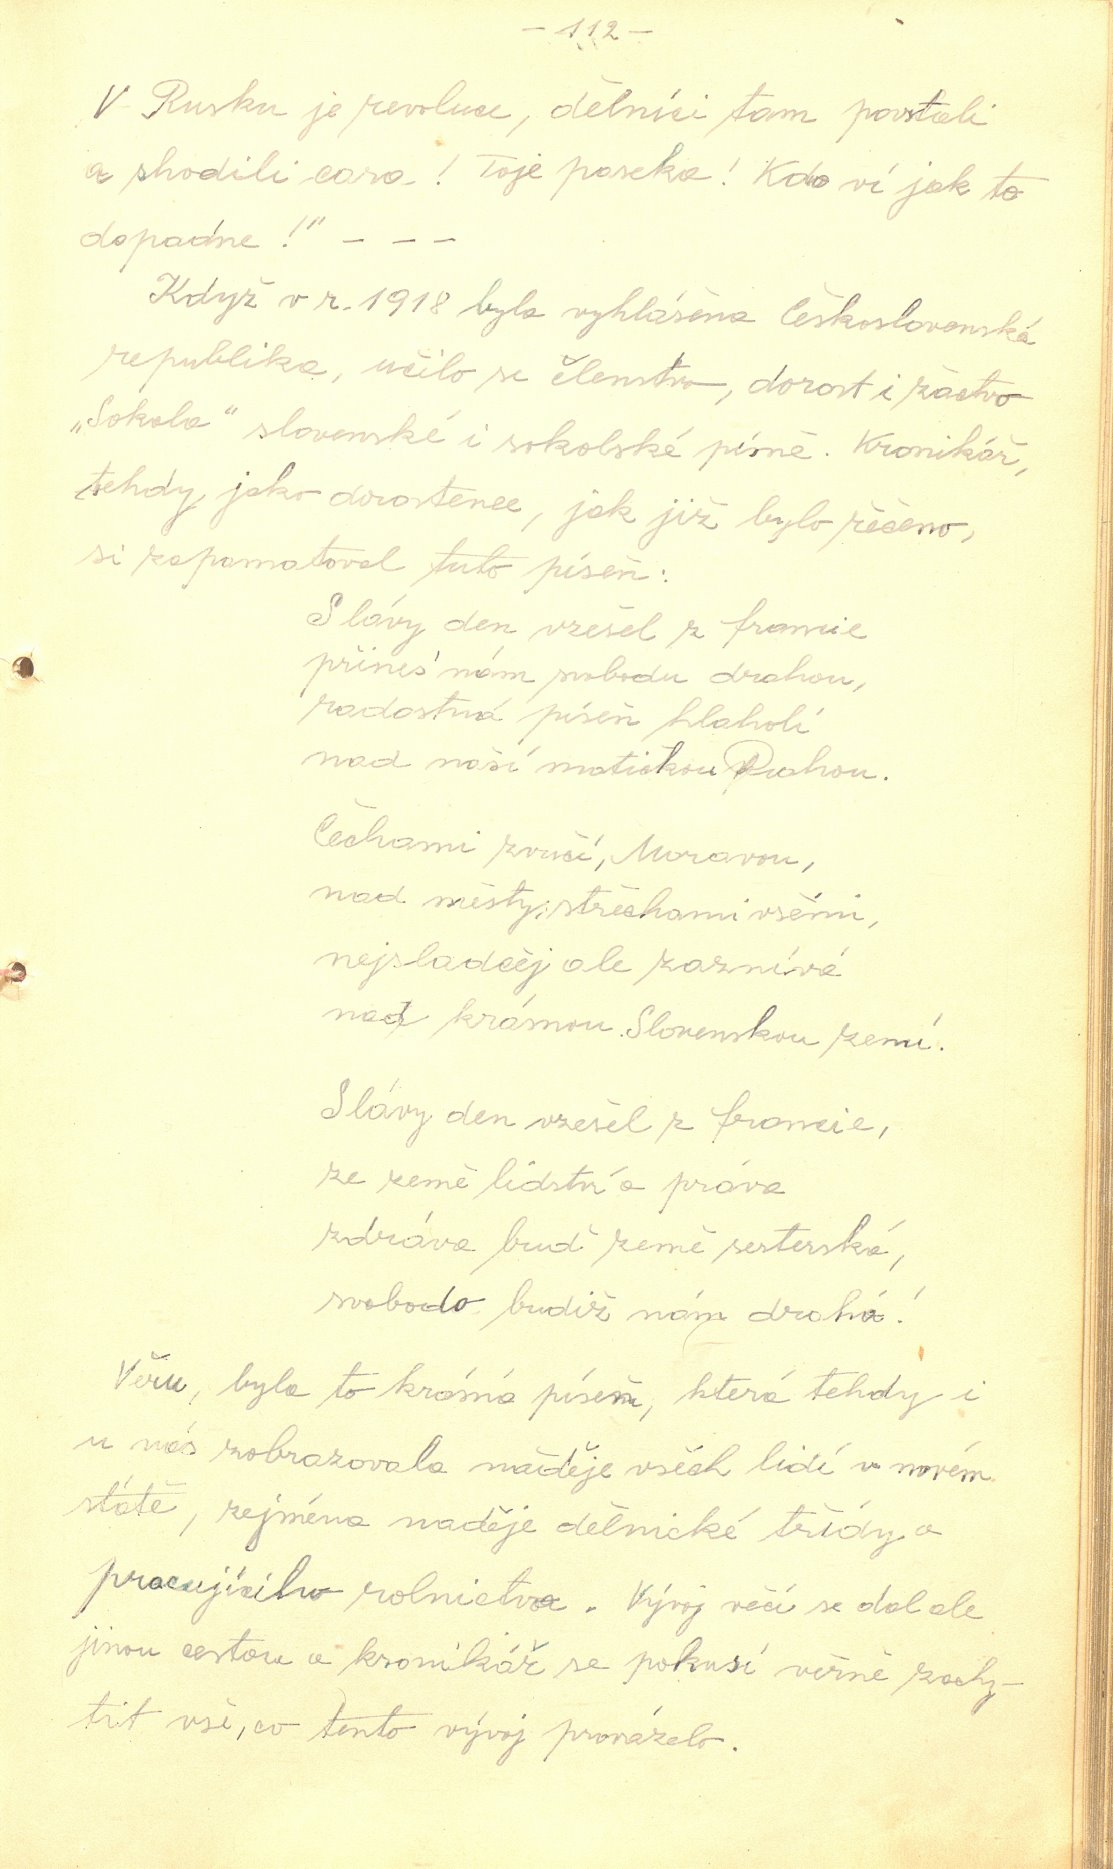 - 112 -
V Rusku je revoluce, dělníci tam povstali
a shodili cara! Toje paseka! Kdo ví jak to
dopadne!" - - -
Když v r. 1918 byla vyhlášena Československá
republika, učilo se členstvo, dorost i žactvo
„Sokola" slovenské i sokolské písně. Kronikář,
tehdy jako dorostenec, jak již bylo řečeno,
si zapamatoval tuto píseň:
Slávy den vzešel z francie
přines' nám svobodu drahou,
radostná píseň hlaholí
nad naší matičkou Prahou.
Čechami zvučí, Moravou,
nad městy, střechami všemi,
nejsladčěj ale zaznívá
nad krásnou Slovenskou zemí.
Slávy den vzešel z francie,
ze země lidství a práva
zdráva buď země sesterská,
svobodo budiž nám drahá!
Věru, byla to krásná píseň, která tehdy i
u nás zobrazovala naděje všech lidí v novém
státě, zejména naděje dělnické třídy a
pracujícího rolnictva. Vývoj věcí se dal ale
jinou cestou a kronikář se pokusí věrně zachy-
tit vše, co tento vývoj provázelo.